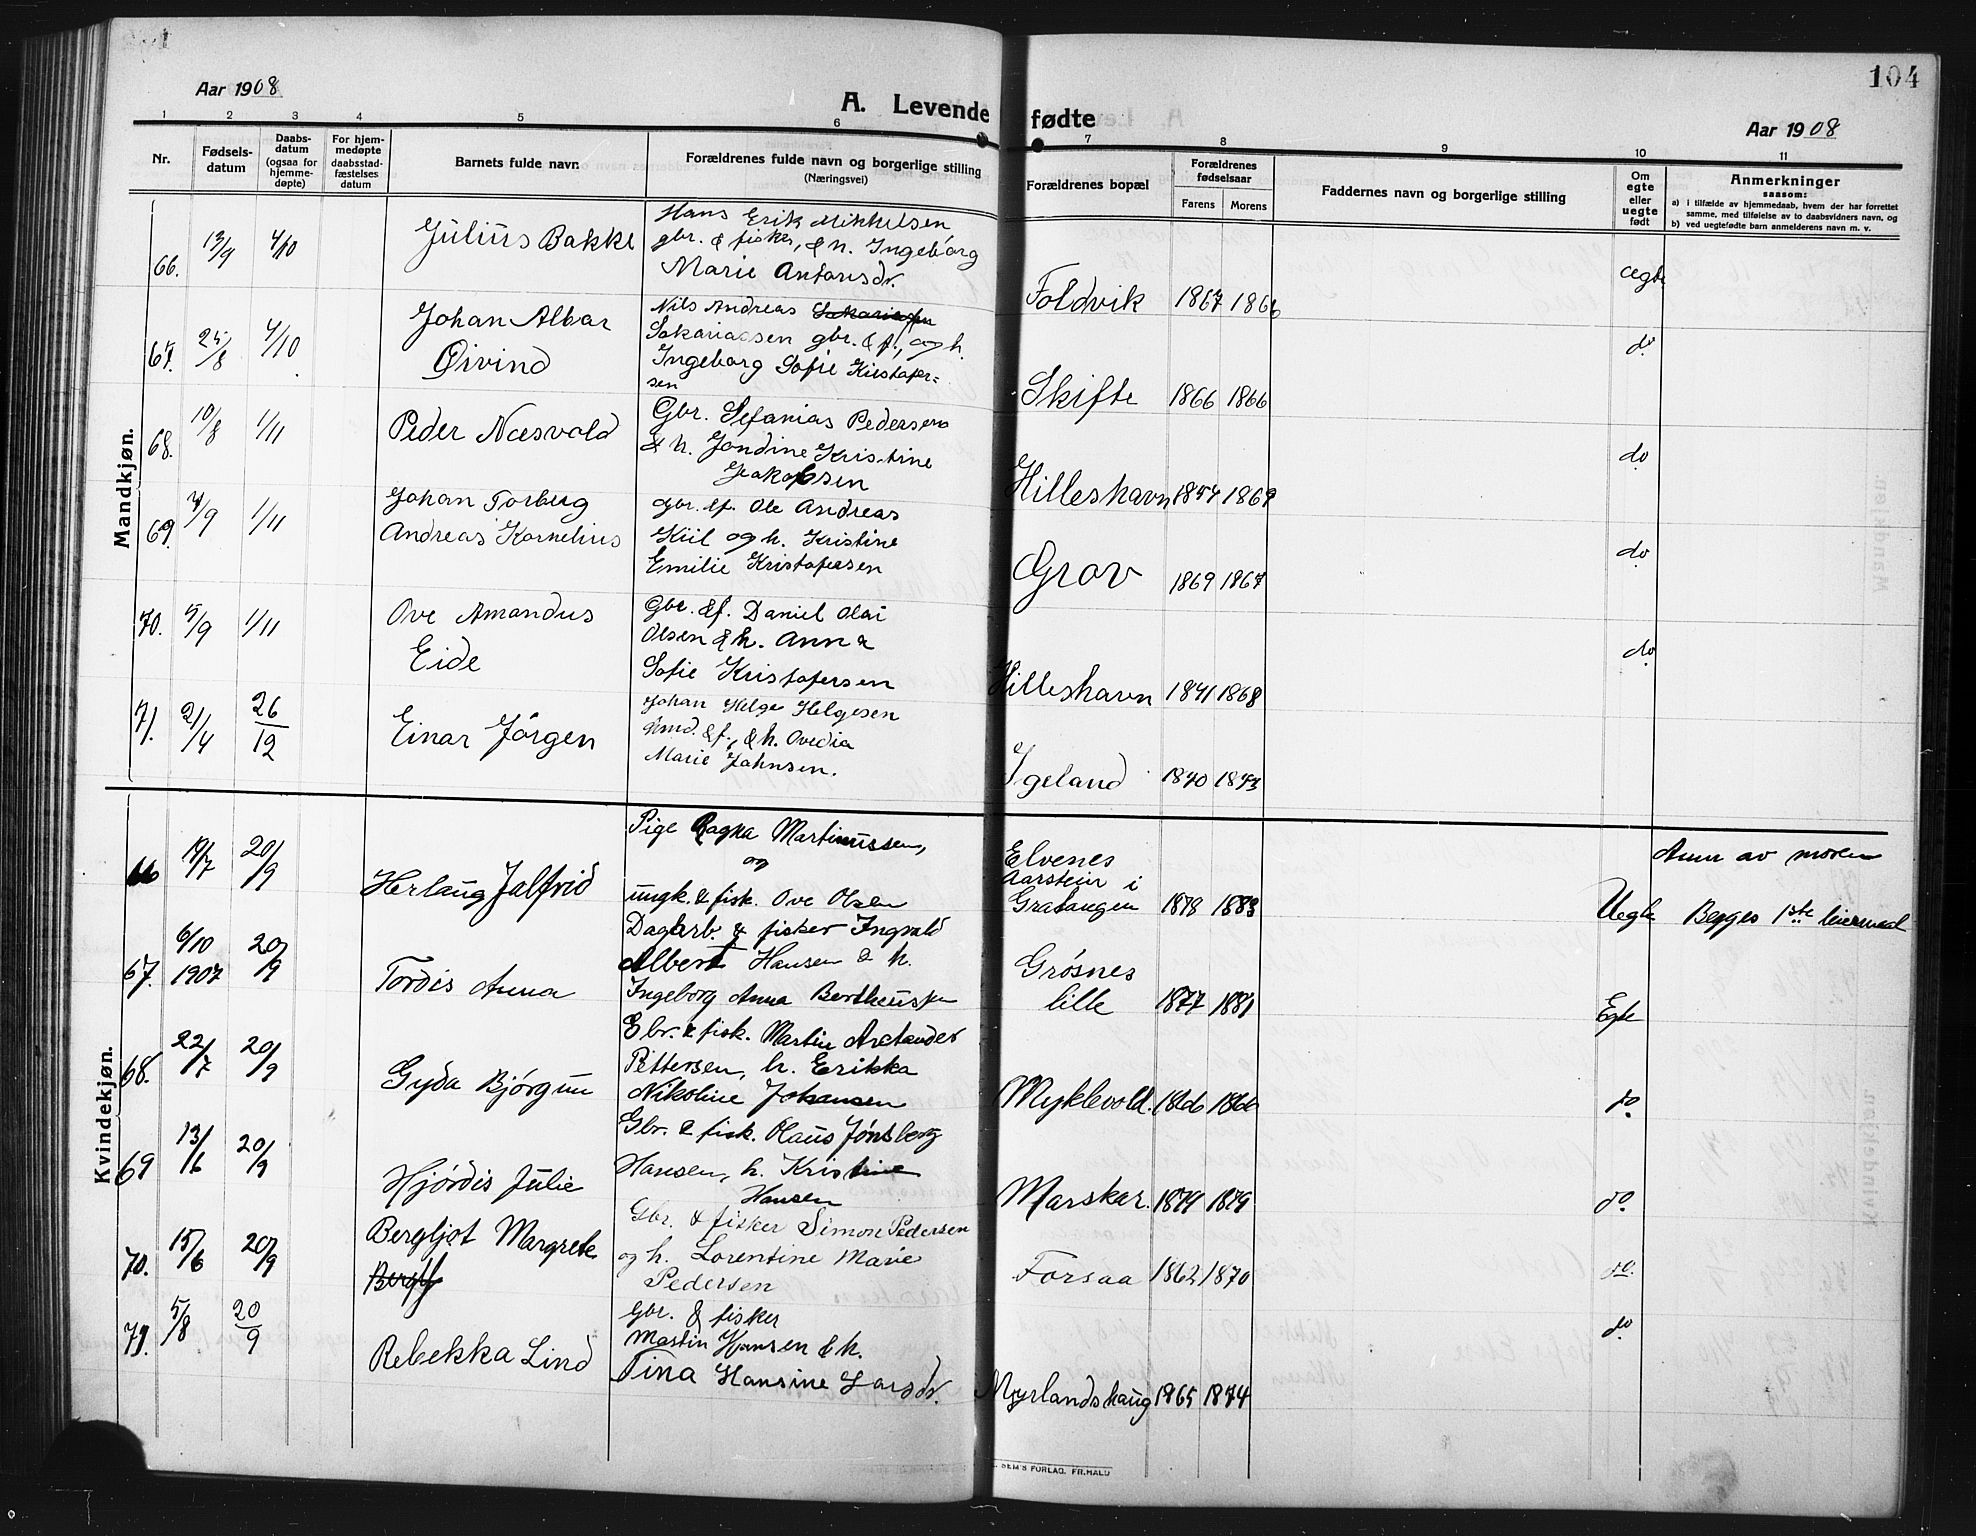 104
Aar 1908
A. Levende fødte
Aar 1908
1 2 3 4 5 6 7 8 9 10 11
Nr.
Fødsels-datum
Daabs-datum (ogsaa for hjemme-døpte)
For hjem-medøpte daabsstad-fæstelses datum
Barnets fulde navn
Forældrenes fulde navn og borgerlige stilling (Næringsvei)
Forældrenes bopæl
Forældrenes fødselsaar
Farens Morens
Faddernes navn og borgerlige stilling
Om egte eller uegte født
Anmerkninger
saasom:
a) i tilfælde av hjemmedaab, hvem der har forrettet
samme, med tilføielse av to daabsvidners navn, og
b) ved uegtefødte barn anmelderens navn m. v.
Mandkjøn.
Hans Erik Mikkelsen
66. 13/9 4/10 Julius Bakke gbr. & fisker, & h. Ingebørg
Marie Antonsdr. Foldvik 1867 1866 egte
Nils Andreas
67. 25/8 4/10 Johan Albar Sakariassen gbr. & f., og h.
Øivind Ingeborg Sofie Kristofer=
sen Skifte 1866 1866 do
68. 10/8 1/11 Peder Næsvold Gbr. Sefanias Pedersen
& h. Jondine Kristine
Jeakobsen Hilleshavn 1857 1869 do
69. 7/9 1/11 Johan Torberg gbr. & f. Ole Andreas
Andreas Kornelius Kiil og h. Kristine
Emilie Kristofersen Grov 1869 1867 do
70. 5/9 1/11 Ove Amandus Gbr. & f. Daniel Olai
Eide Olsen & h. Anna
Sofie Kristofersen Hilleshavn 1871 1868 do
71. 21/4 26/12 Einar Jörgen Johan Helge Helgesen
& f., & h. Ovedia
Marie Johnsen. Igeland 1870 1873
Kvindekjøn.
Pige Ragna Martinussen,
og
66 19/7 20/9 Herlaug Jalfrid ungk. & fisk. Ove Olsen
Elvenes
Aarstein i
Gratangen 1878 1883 Uegte
Anm av moren
Begges 1ste leiermaal
67. 6/10 1907 20/9 Tordis Anna Dagarb. & fisker Ingvald
Albert Hansen & h.
Ingeborg Anna Bertheussen Grøsnes
lille 1877 1881 Egte
68. 22/7 20/9 Gyda Bjórgun Gbr. & fisk. Martin Arctander
Pettersen, h. Erikka
Nikoline Johansen Myklevold. 1866 1866 do
69 13/6 20/9 Hjørdis Julie Gbr. & fisk. Olaus Jöntsberg
Hansen, h. Kristine
Hansen Marskar. 1879 1879 do
70. 15/6 20/9 Bergljot Margrete Gbr. & fisker Simon Pedersen
og h. Lorentine Marie
Pedersen Forsaa 1862 1870 do.
71. 5/8 20/9 Rebekka Lind Gbr. & fisker
Martin Hansen & h.
Tina Hansine Larsdr. Myrlandshaug 1865 1874 do
SEM'S FORLAG, FR.HALD